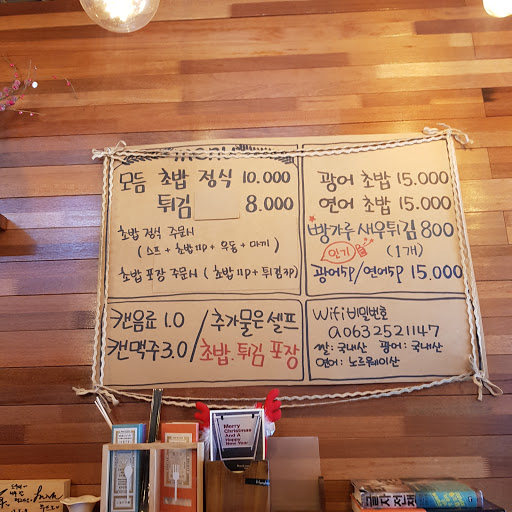 menu
모듬 초밥 정식 10.000
튀김 8.000
초밥 정식 주문시
(스프 + 초밥 11P + 우동 + 마끼)
초밥 포장 주문시 (초밥 11P + 튀김3P)
광어 초밥 15.000
연어 초밥 15.000
빵가루 새우튀김 800
인기 (1개)
광어5P/연어5P 15.000
캔음료 1.0
캔맥주 3.0
추가물은 셀프
초밥.튀김 포장
Wifi 비밀번호
a0632521147
쌀: 국내산 광어: 국내산
연어: 노르웨이산
Merry
Christmas
And A
Happy
New Year